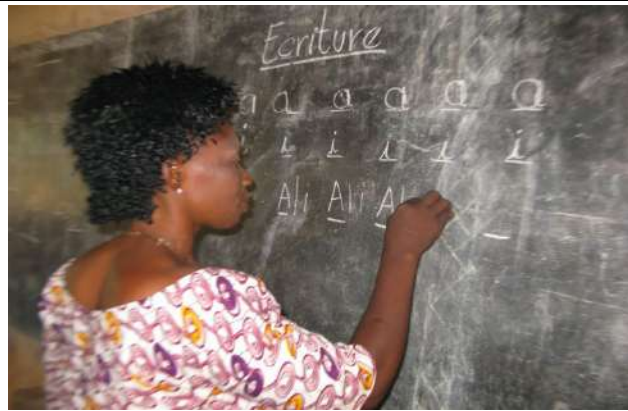 Ecriture
a a a a a a
i i i i i i
Ali Ali Al